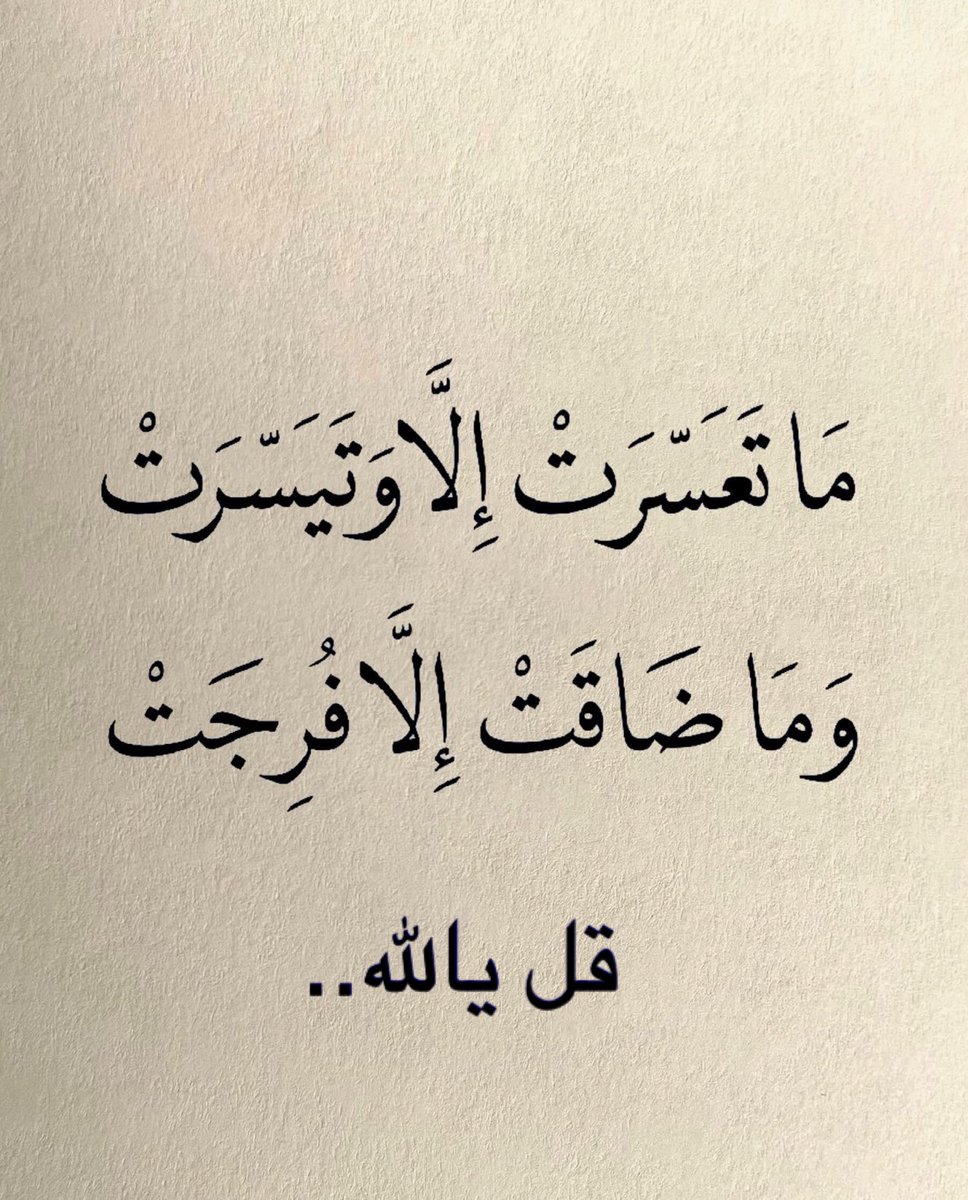 مَا تَعَسَّرَتْ إِلَّا وَتَيَسَّرَتْ
وَمَا ضَاقَتْ إِلَّا فُرِجَتْ
قل يالله..